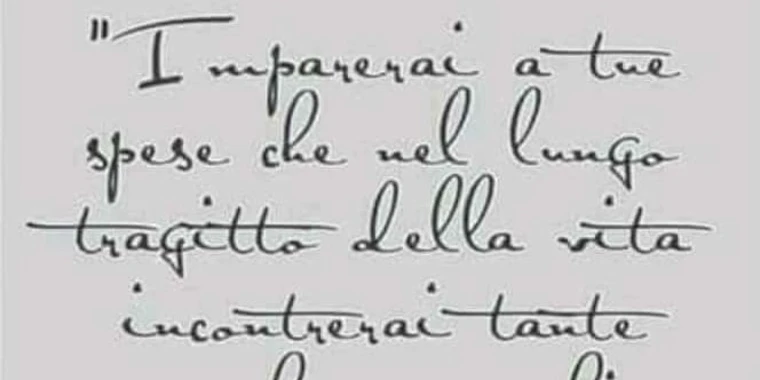 "Imparerai a tue
spese che nel lungo
tragitto della vita
incontrerai tante